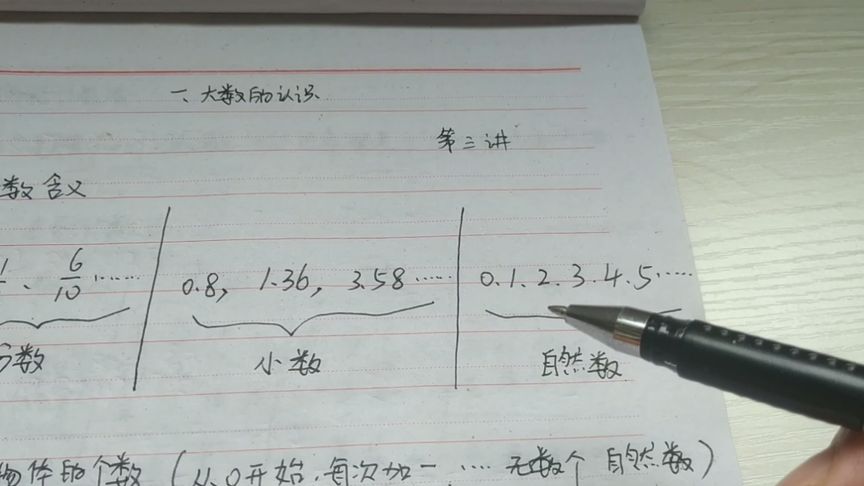 一、大数的认识
第三讲
数含义
6/10 …… 0.8, 1.36, 3.58 …… 0.1.2.3.4.5……
分数 小数 自然数
物体的个数（从0开始，每次加一，…… 无数个 自然数）